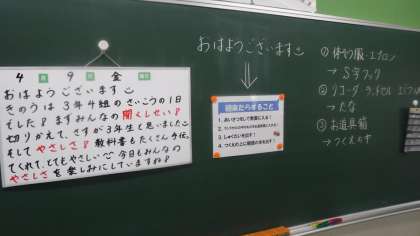 4月9日金曜日
おはようございます
きのうは3年4組のさいこうの1日
でした!ますみんなの聞くしせい!
切りかえて、さすが3年生と思いました
そして やさしさ! 教科書もたくさん手伝っ
てくれて、とてもやさしい 今日もみんなの
やさしさを楽しみにしていますね!
おはようございます
朝来たらすること
1. あいさつをして教室に入る!
3. しゅくだいを出す!
① 体そう服・エプロン
→ S字フック
② リコーダ ランドセル
→ たな
③ お道具箱
→ つくえの下